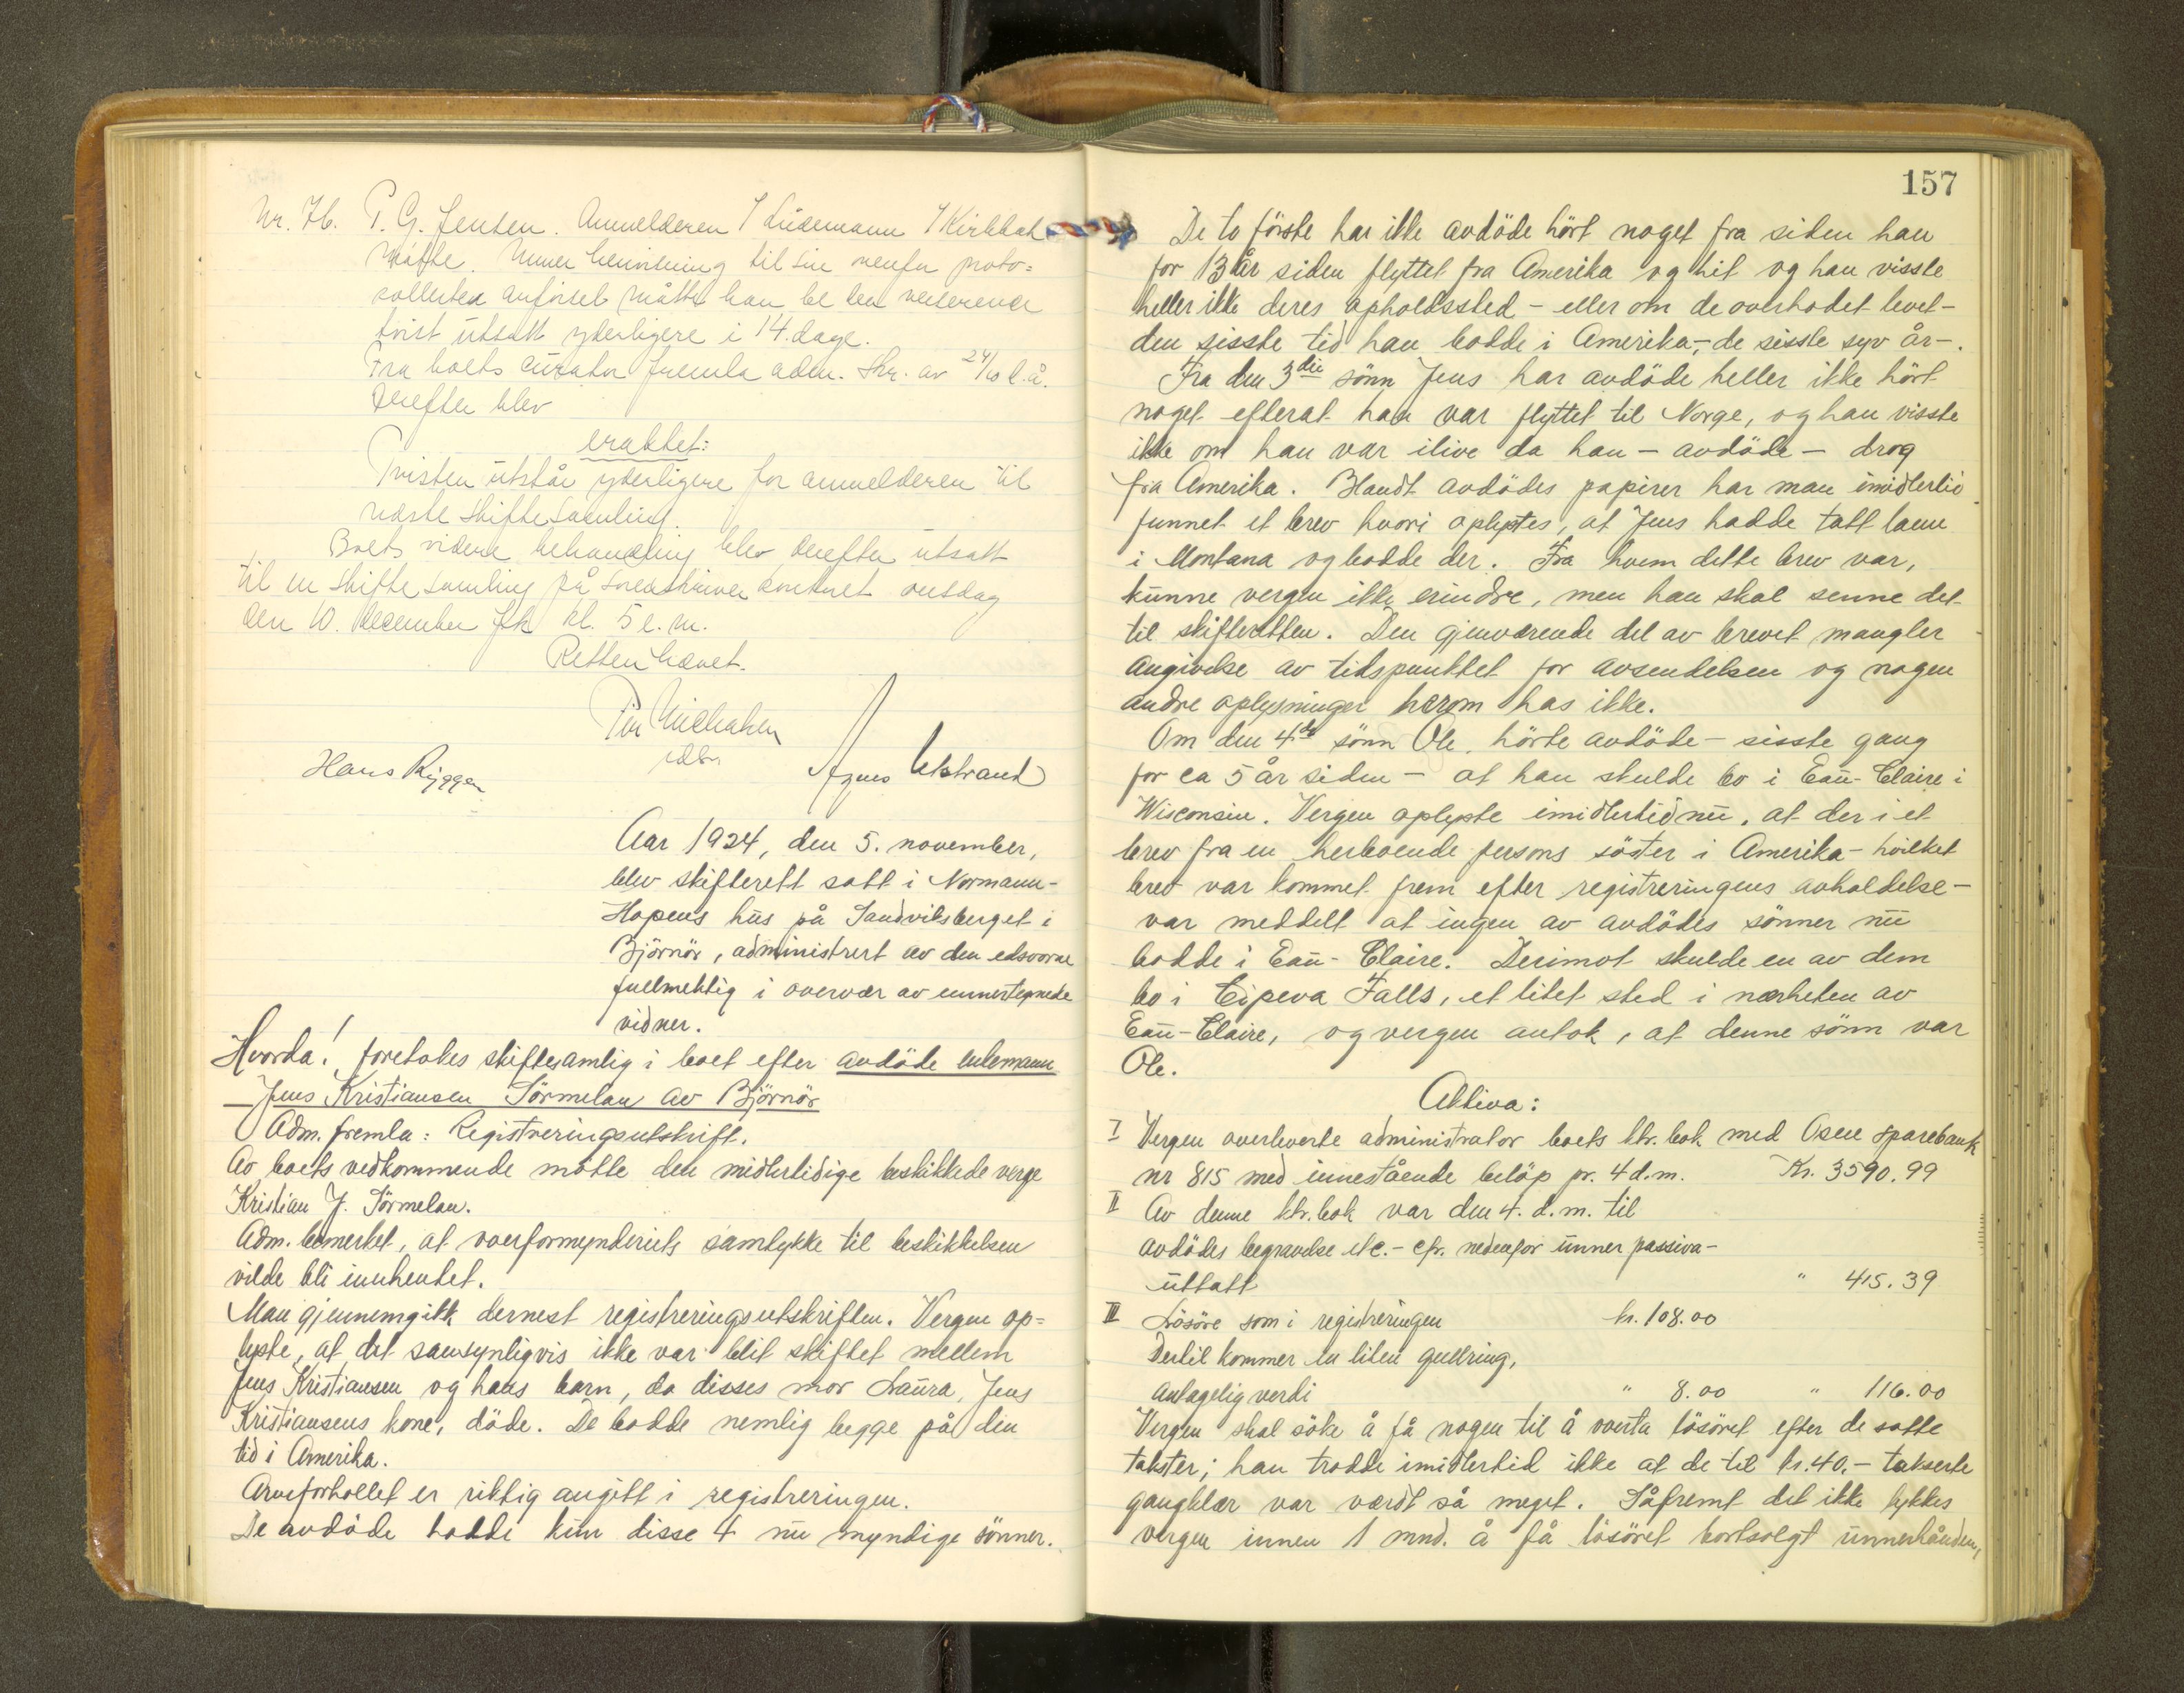 Nr. 76. P. G. Jensen. Anmelderen / Lüdemann / Kirkbak
møtte. Unner henvisning til sin nenfr proto-
kollerte anførsel måtte han be den verserende
tvist utsatt yderligere i 14. dage.
Fra boets curator fremla adm. skr. av 24/10 d.å.
Derefter blev
eraktet:
Tvisten utstår yderligere for anmelderen til
næste skiftesamling.
Boets videre behandling blev derefter utsatt
til en skiftesamling på sorenskriverkontoret onsdag
den 10. december fk kl. 5 e.m.
Retten hævet.
Hans Ryggen
Agnes Utstrand
Aar 1924, den 5. november,
blev skifterett satt i Normann-
Hopens hus på Sandviksberget i
Björnör, administrert av den edsvorne
fullmektig i overvær av unnertegnede
vidner.
Hvorda! foretokes skiftesamlig i boet efter avdöde enkemann
Jens Kristiansen Sörmelan av Björnör
Adm. fremla: Registreringsutskrift.
Av boets vedkommende mötte den midlertidige beskikkede verge
Kristian J. Sörmelan.
Adm. bemerket, at overformynderiets samtykke til beskikkelsen
vilde bli innhentet.
Man gjennemgikk dernest registreringsutskriften. Vergen op-
lyste, at det sansynligvis ikke var blit skiftet mellem
Jens Kristiansen og hans barn, da disses mor Laura, Jens
Kristiansens kone, döde. De bodde nemlig begge på den
tid i Amerika.
Arveforhollet er riktig angitt i registreringen.
De avdöde hadde kun disse 4 nu myndige sönner.
157
De to förste har ikke avdöde hört noget fra siden han
for 13 år siden flyttet fra Amerika og hit og han visste
heller ikke deres opholdssted - eller om de overhodet levet -
den sisste tid han bodde i Amerika, - de sisste syv år -.
Fra den 3die sönn Jens har avdöde heller ikke hört
noget efterat han var flyttet til Norge, og han visste
ikke om han var ilive da han - avdöde - drog
fra Amerika. Blandt avdödes papirer har man imidlertid
funnet et brev hvori oplystes, at Jens hadde tatt lann
i Montana og bodde der. Fra hvem dette brev var,
kunne vergen ikke erindre, men han skal senne det
til skifteretten. Den gjenværende del av brevet mangler
angivelse av tidspunktet for avsendelsen og nogen
andre oplysninger herom has ikke.
Om den 4de sönn Ole, hörte avdöde - sisste gang
for ca 5 år siden - at han skulde bo i Eau-Claire i
Wisconsin. Vergen oplyste imidlertid nu, at der i et
brev fra en herboende persons söster i Amerika - hvilket
brev var kommet frem efter registreringens avholdelse -
var meddelt at ingen av avdödes sönner nu
bodde i Eau-Claire. Derimot skulde en av dem
bo i Cipeva Falls, et litet sted i nærheten av
Eau-Claire, og vergen antok, at denne sönn var
Ole.
Aktiva:
I Vergen overleverte administrator boets ktr. bok med Osen sparebank
nr 815 med innestående belöp pr. 4 d.m. Kr. 3590.99
II Av denne ktr. bok var den 4. d.m. til
avdödes begravelse etc. - cfr. nedenfor unner passiva -
uttatt " 415.39
III Lösöre som i registreringen kr. 108.00
Dertil kommer en liten gullring,
antagelig verdi " 8.00 " 116.00
Vergen skal söke å få nogen til å overta lösöret efter de satte
takster; han trodde imidlertid ikke at de til kr. 40.- takserte
gangklær var værdt så meget. Såfremt det ikke lykkes
vergen innen 1 mnd. å få lösöret bortsolgt unnerhånden,